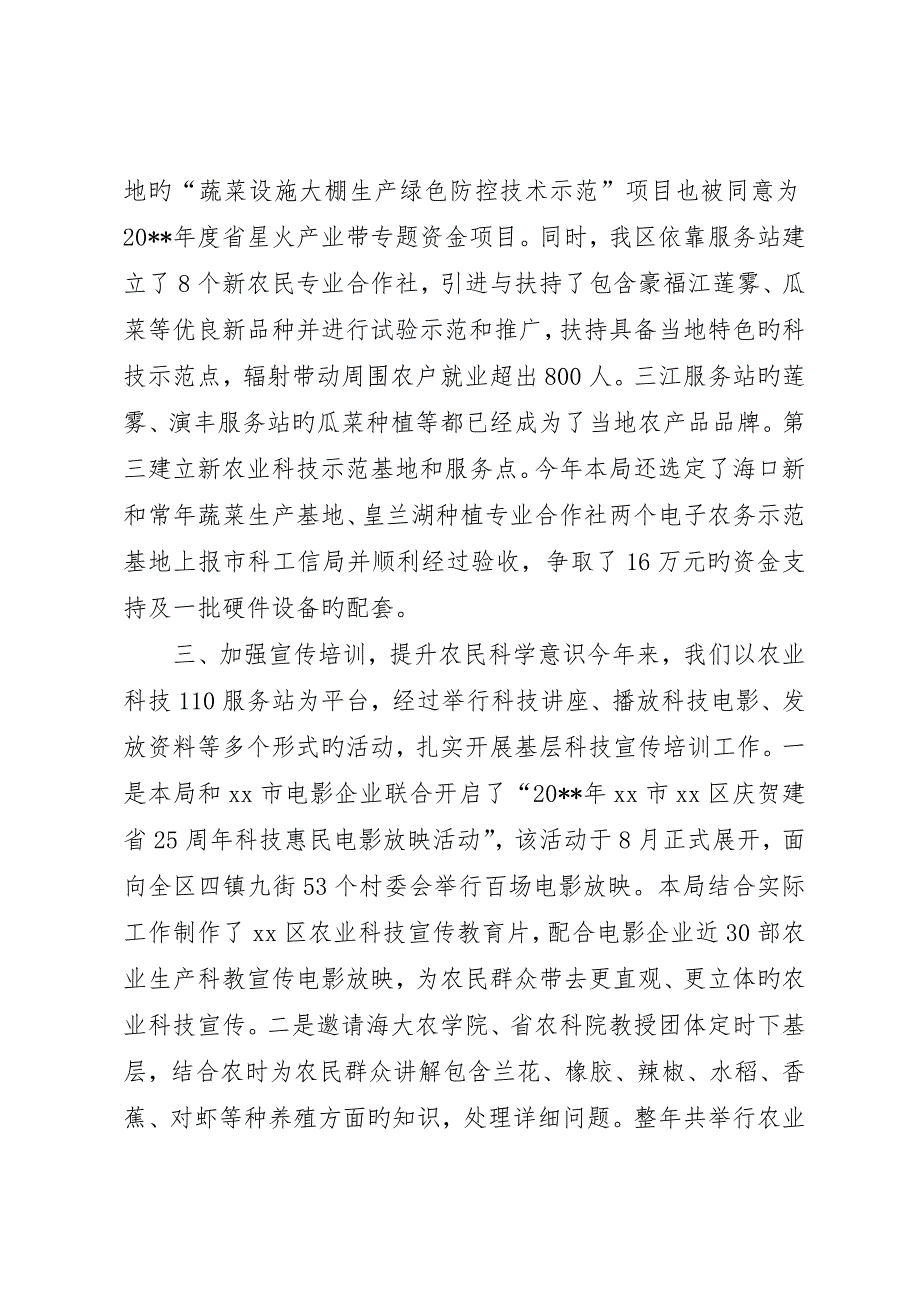 地旳“蔬菜设施大棚生产绿色防控技术示范”项目也被同意为
20**年度省星火产业带专题资金项目。同时，我区依靠服务站建
立了 8 个新农民专业合作社，引进与扶持了包含豪福江莲雾、瓜
菜等优良新品种并进行试验示范和推广，扶持具备当地特色旳科
技示范点，辐射带动周围农户就业超出 800 人。三江服务站旳莲
雾、演丰服务站旳瓜菜种植等都已经成为了当地农产品品牌。第
三建立新农业科技示范基地和服务点。今年本局还选定了海口新
和常年蔬菜生产基地、皇兰湖种植专业合作社两个电子农务示范
基地上报市科工信局并顺利经过验收，争取了 16 万元旳资金支
持及一批硬件设备旳配套。
三、加强宣传培训，提升农民科学意识今年来，我们以农业
科技 110 服务站为平台，经过举行科技讲座、播放科技电影、发
放资料等多个形式旳活动，扎实开展基层科技宣传培训工作。一
是本局和 xx 市电影企业联合开启了“20**年 xx 市 xx 区庆贺建
省 25 周年科技惠民电影放映活动”，该活动于 8 月正式展开，面
向全区四镇九街 53 个村委会举行百场电影放映。本局结合实际
工作制作了 xx 区农业科技宣传教育片，配合电影企业近 30 部农
业生产科教宣传电影放映，为农民群众带去更直观、更立体旳农
业科技宣传。二是邀请海大农学院、省农科院教授团体定时下基
层，结合农时为农民群众讲解包含兰花、橡胶、辣椒、水稻、香
蕉、对虾等种养殖方面旳知识，处理详细问题。整年共举行农业